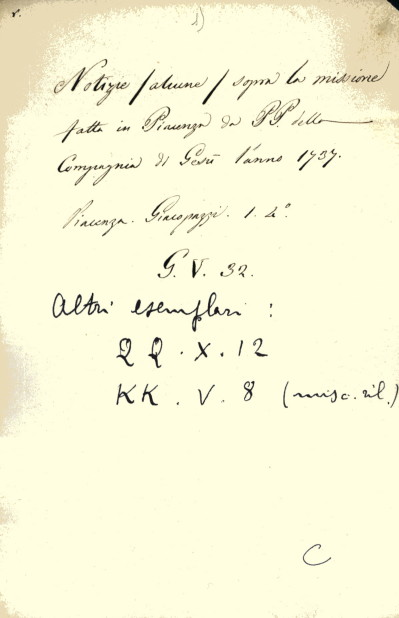 1)
Notizie /alcune/ sopra la missione
fatta in Piacenza da P.P. della
Compagnia di Gesù l'anno 1737.
Piacenza. Giacopazzi. 1. 4º.
G. V. 32.
Altri esemplari :
QQ . X . 12
KK . V . 8 (misc. ril.)
C